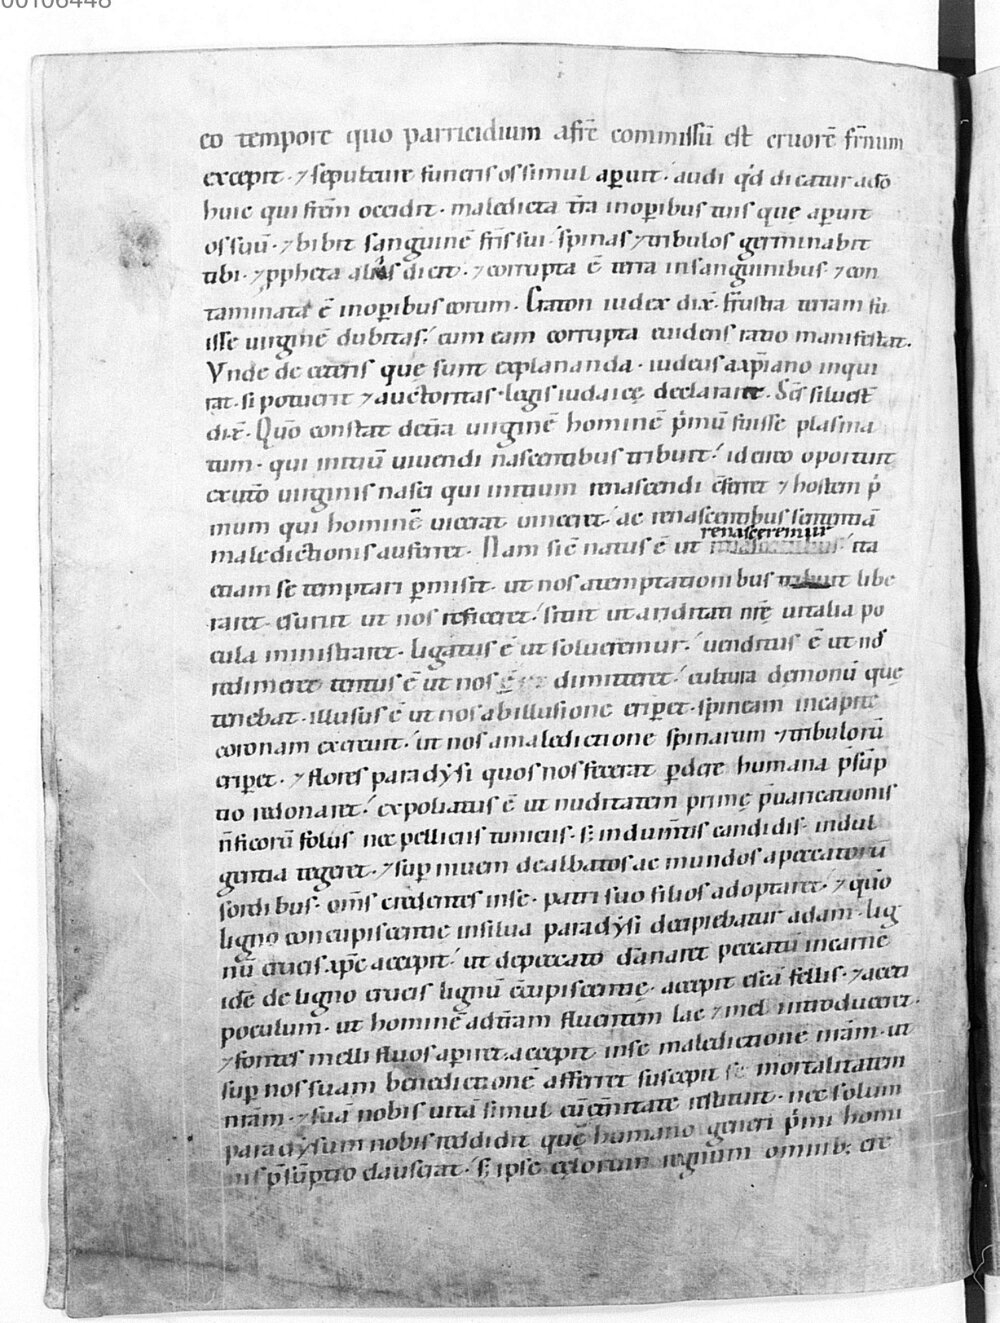 00106448
eo tempore quo parricidium a fr̄e commissū est cruorē fr̄num
excepit · ⁊ sepulturę funeris os simul aꝑuit · audi qđ dicatur a dō
huic qui frēm occidit · maledicta t̄ra in oꝑibus tuis quę aꝑuit
os suū · ⁊ bibit sanguinē fr̄is sui · spinas ⁊ tribulos germinabit
tibi · ⁊ ꝓpheta dicit · ⁊ corrupta ē terra in sanguinibus · ⁊ con
taminata ē in oꝑibus eorum · Craton iudex dix̄ · frustra terram fu
isse uirginē dubitas · cum eam corrupta euidens ratio manifestat ·
Vnde de ceteris quę sunt explananda · iudeus a xp̄iano inqui
rat · si potuerit ⁊ auctoritas · legis iudaicę declarare · Sc̄s siluest̄
dix̄ · Quō constat de t̄ra uirginē hominē p̄mū fuisse plasma
tum · qui initiū uiuendi nascentibus tribuit · idcirco oportuit
ex utō uirginis nasci qui initium renascendi ⁊ hostem p̄
mum qui hominē uicerat uinceret · ac renascentibus sententiā
maledictionis auferret · Nam sic̄ natus ē ut renasceremur · ita
etiam se temptari ꝑmisit · ut nos a temptationibus libe
raret · esuriit ut nos reficeret · sitiit ut ariditati nr̄ę uitalia po
cula ministraret · ligatus ē ut solueremur · uenditus ē ut nos
redimeret tentus ē ut nos dimitteret · cultura dęmonū quę
tenebat · illusus ē ut nos ab illusione eriꝑet · spineam in capite
coronam excepit · ut nos a maledictione spinarum ⁊ tribulorū
eriꝑet · ⁊ flores paradẏsi quos nos fecerat ꝑdere humana p̄sūp
tio redonaret · expoliatus ē ut nuditatem primę p̄uaricationis
n̄ ficorū foliis nec pelliciis tunicis · s; indumtis candidis · indul
gentia tegeret · ⁊ suꝑ niuem dealbatos ac mundos a peccatorū
sordibus · om̄s credentes in se · patri suo filios adoptaret · ⁊ quō
ligno concupiscentie in silua paradẏsi decipiebatur adam · lig
nū crucis xp̄c accepit · ut de peccato dānaret peccatū in carne
idē de ligno crucis lignū cc̄upiscentię · accepit escā fellis · ⁊ aceti
poculum · ut hominē ad t̄ram fluentem lac ⁊ mel introduceret ·
⁊ fontes mellifluos aꝑiret accepit in se maledictionē nr̄am · ut
suꝑ nos suam benedictionē afferret suscepit se mortalitatem
nr̄am · ⁊ suā nobis uitā simul cū et̄nitate restituit · nec solum
paradẏsum nobis reddidit quę humano generi p̄mi homi
nis p̄sūptio clauserat · s; ipse cęlorum regnum omnib; cre